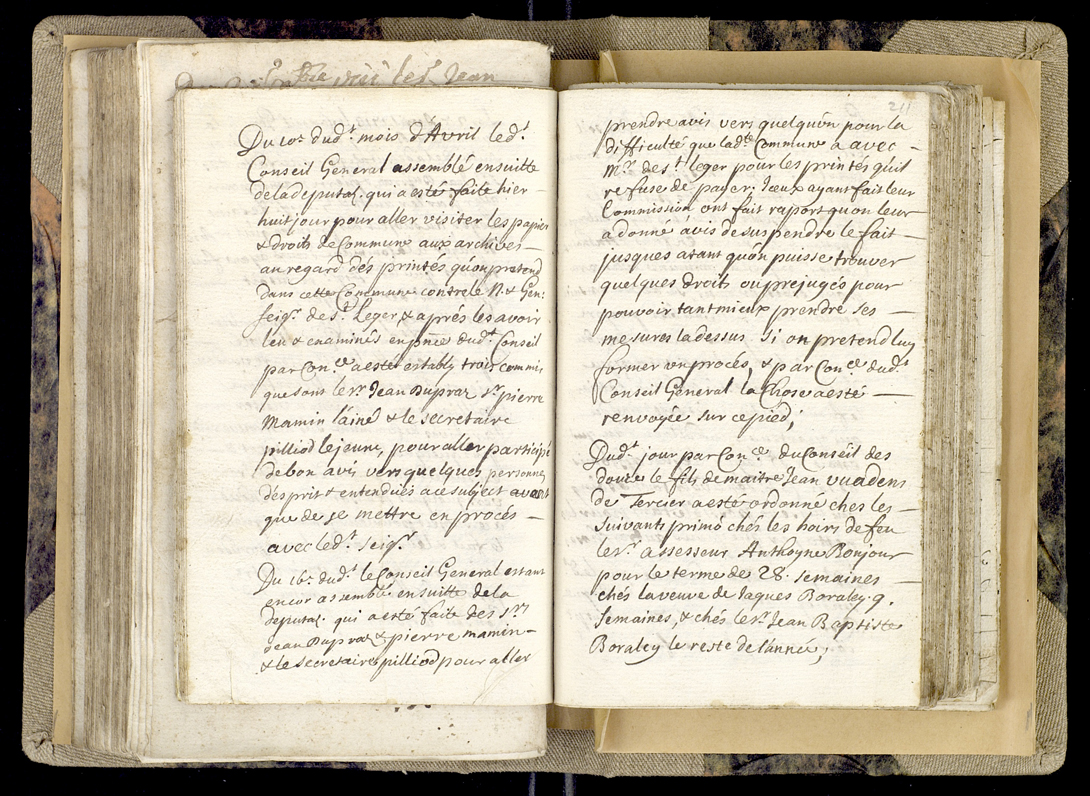 sieur les.r Jean
Du 10.e dud.t mois d'Avril led.t
Conseil General assemblé ensuitte
de la deputa.o qui a estée faite hier
huit jour pour aller visiter les papiers
& droits de Commune aux archives
au regard des printés qu'on pretend
dans cette Commune contre le N. & Gen:
seig.r de s.t Leger, & aprés les avoir
leu & examinés en p.nce dud.t Conseil
par Con.ce a esté establÿ trois commis
que sont le s.r Jean Dupraz s.r pierre
Mamin l'ainé & le secretaire
pilliod le jeune, pour aller participé
de bon avis vers quelques personnes
d'esprit & entendües a ce subject avant
que de se mettre en procés
avec led.t seig.r
Du 16.e dud.t le Conseil General estant
encor assemblé ensuitte de la
deputa.o qui a esté faite des s.rs
Jean Dupraz & pierre mamin
& le secretaire pilliod pour aller
211
prendre avis vers quelqu'ün pour la
difficulté que lad.te Commune a avec
M.r de s.t leger pour les printés qu'il
refuse de payer; Iceux ayant fait leur
Commission ont fait raport qu'on leur
a donné avis de suspendre le fait
jusques a tant qu'on puisse trouver
quelques droits ou prejugés pour
pouvoir tant mieux prendre ses
mesures la dessus si on pretend luy
former un procés, & par Con.ce dud.t
Conseil General la Chose a esté
renvoyée sur ce pied;
Dud.t jour par Con.ce du Conseil des
douze le fils de maitre Jean vuadens
de Tercier a esté ordonné ches les
suivants primo chés les hoirs de feu
le s.r assesseur Anthoyne Bonjour
pour le terme de 28. semaines
chés la veuve de Jaques Boraley 9.
semaines, & chés le s.r Jean Baptiste
Boraley le reste de l'année;